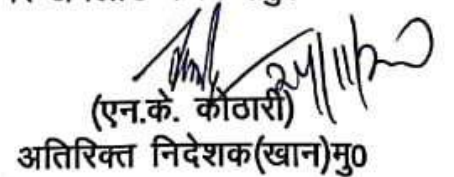 24/11/20
(एन.के. कोठारी)
अतिरिक्त निदेशक(खान)मु0